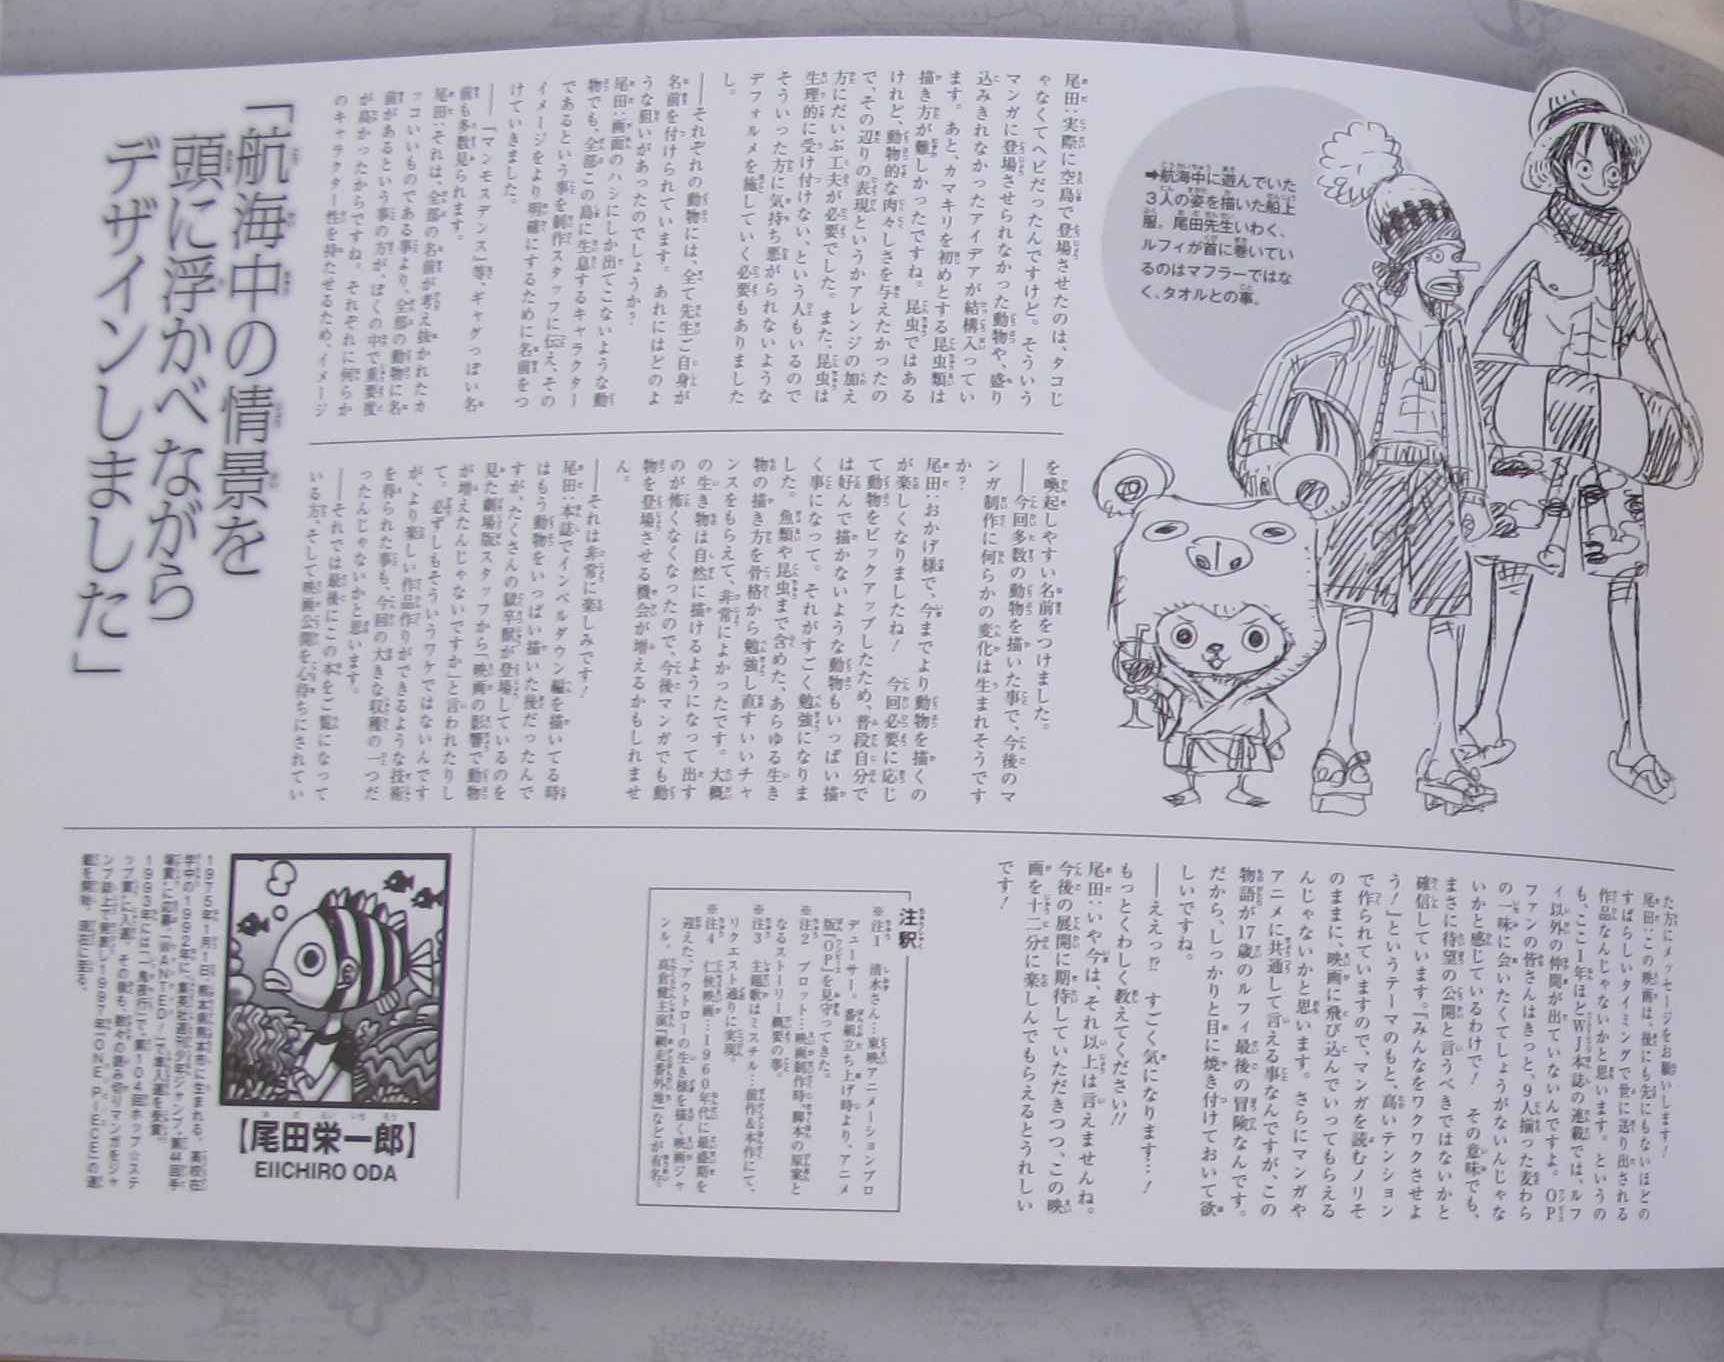 尾田：実際に空島で登場させたのは、タコじ
ゃなくてヘビだったんですけど。そういう
マンガに登場させられなかった動物や、盛り
込みきれなかったアイデアが結構入ってい
ます。あと、カマキリを初めとする昆虫類は
描き方が難しかったですね。昆虫ではある
けれど、動物的な肉々しさを与えたかったの
で、その辺りの表現というかアレンジの加え
方にだいぶ工夫が必要でした。また、昆虫は
生理的に受け付けない、という人もいるので
そういった方に気持ち悪がられないような
デフォルメを施していく必要もありました
し。
――それぞれの動物には、全て先生ご自身が
名前を付けられています。あれにはどのよ
うな狙いがあったのでしょうか？
尾田：画面のハシにしか出てこないような動
物でも、全部この島に生息するキャラクター
であるという事を制作スタッフに伝え、その
イメージをより明確にするために名前をつ
けていきました。
――「マンモスデンス」等、ギャグっぽい名
前も多数見られます。
尾田：それは、全部の名前が考え抜かれたカ
ッコいいものである事より、全部の動物に名
前があるという事の方が、ぼくの中で重要度
が高かったからですね。それぞれに何らか
のキャラクター性を持たせるため、イメージ
を喚起しやすい名前をつけました。
――今回多数の動物を描いた事で、今後のマ
ンガ制作に何らかの変化は生まれそうです
か？
尾田：おかげ様で、今までより動物を描くの
が楽しくなりましたね！　今回必要に応じ
て動物をピックアップしたため、普段自分で
は好んで描かないような動物もいっぱい描
く事になって。それがすごく勉強になりま
した。魚類や昆虫まで含めた、あらゆる生き
物の描き方を骨格から勉強し直すいいチャ
ンスをもらえて、非常によかったです。大概
の生き物は自然に描けるようになって出す
のが怖くなくなったので、今後マンガでも動
物を登場させる機会が増えるかもしれませ
ん。
――それは非常に楽しみです！
尾田：本誌でインペルダウン編を描いてる時
はもう動物をいっぱい描いた後だったんで
すが、たくさんの獄卒獣が登場しているのを
見た劇場版スタッフから「映画の影響で動物
が増えたんじゃないですか」と言われたりし
て。必ずしもそういうワケではないんです
が、より楽しい作品作りができるような技術
を得られた事も、今回の大きな収穫の一つだ
ったんじゃないかと思います。
――それでは最後にこの本をご覧になって
いる方、そして映画公開を心待ちにされてい
た方にメッセージをお願いします！
尾田：この映画は、後にも先にもないほどの
すばらしいタイミングで世に送り出される
作品なんじゃないかと思います。というの
も、ここ1年ほどWJ本誌の連載では、ルフ
ィ以外の仲間が出ていないんですよ。OP
ファンの皆さんはきっと、9人揃った麦わら
の一味に会いたくてしょうがないんじゃな
いかと感じているわけで！　その意味でも、
まさに待望の公開と言うべきではないかと
確信しています。『みんなをワクワクさせよ
う！』というテーマのもと、高いテンション
で作られていますので、マンガを読むノリそ
のままに、映画に飛び込んでいってもらえる
んじゃないかと思います。さらにマンガや
アニメに共通して言える事なんですが、この
物語が17歳のルフィ最後の冒険なんです。
だから、しっかりと目に焼き付けておいて欲
しいですね。
――ええっ!?　すごく気になります…！
もっとくわしく教えてください!!
尾田：いや今は、それ以上は言えませんね。
今後の展開に期待していただきつつ、この映
画を十二分に楽しんでもらえるとうれしい
です！
➡航海中に遊んでいた
3人の姿を描いた船上
服。尾田先生いわく、
ルフィが首に巻いてい
るのはマフラーではな
く、タオルとの事。
「航海中の情景を
頭に浮かべながら
デザインしました」
注釈
※注1　清水さん…東映アニメーションプロ
デューサー。番組立ち上げ時より、アニメ
版『OP』を見守ってきた。
※注2　プロット…映画制作時、脚本の原案と
なるストーリー概要の事。
※注3　主題歌はミスチル…前作＆本作にて、
リクエスト通りに実現。
※注4　仁侠映画…1960年代に最盛期を
迎えた、アウトローの生き様を描く映画ジャ
ンル。高倉健主演『網走番外地』などが有名。
【尾田栄一郎】
EIICHIRO ODA
1975年1月1日、熊本県熊本市に生まれる。高校在
学中の1992年に、集英社週刊少年ジャンプ、第44回手
塚賞に応募、「WANTED！」で準入選を受賞。
1993年には「一鬼夜行」で、第104回ホップ☆ステ
ップ賞に入選。その後も、数々の読み切りマンガをジャ
ンプ誌上で発表し1997年「ONE PIECE」の連
載を開始。現在に至る。